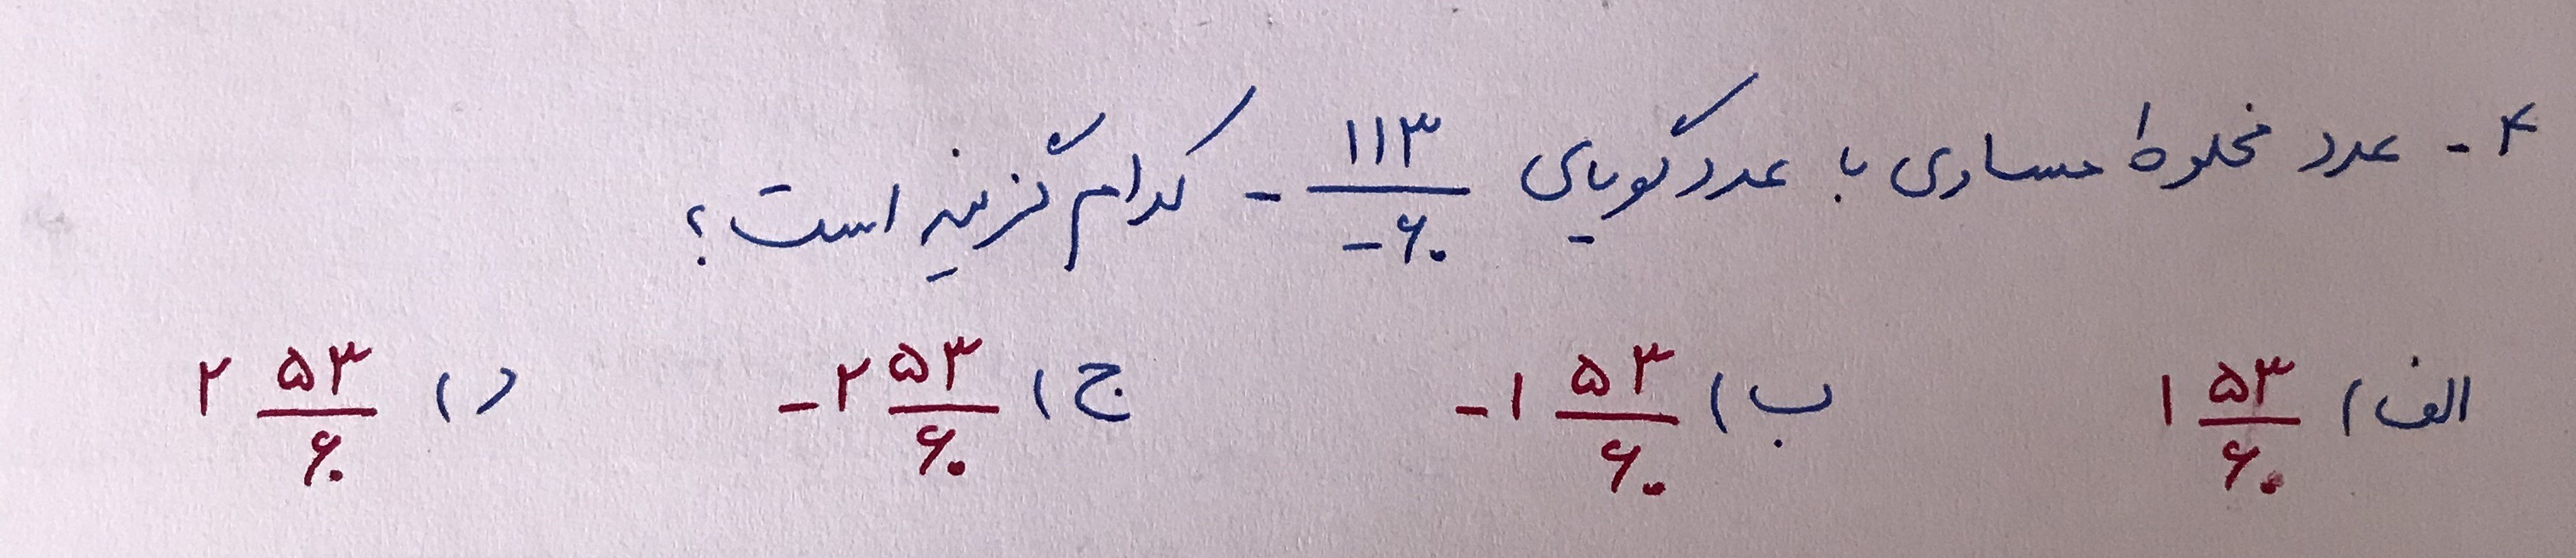 ۴- عدد مخلوط مساوی با عدد گویای -۱۱۳/-۶۰ کدام گزینه است؟
الف) ۱ ۵۳/۶۰ ب) -۱ ۵۳/۶۰ ج) -۲ ۵۳/۶۰ د) ۲ ۵۳/۶۰